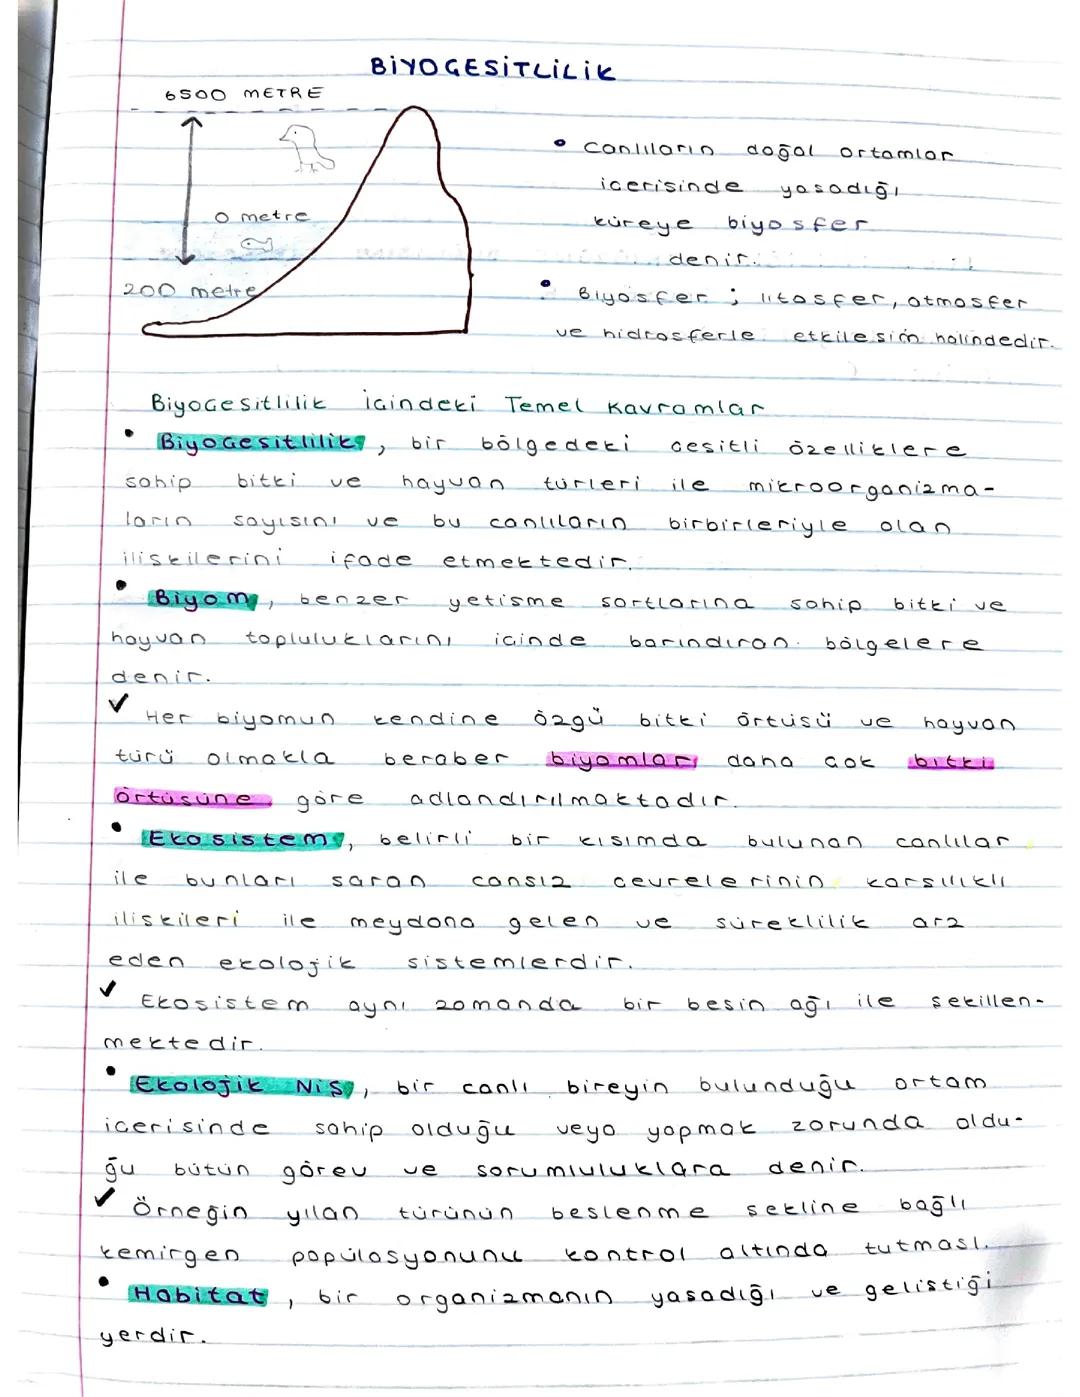 BİYOÇEŞİTLİLİK
6500 METRE
0 metre
200 metre
• Canlıların doğal ortamlar
içerisinde yaşadığı
küreye biyosfer
denir.
• Biyosfer ; litosfer, atmosfer
ve hidrosferle etkileşim halindedir.
Biyoçeşitlilik İçindeki Temel Kavramlar
• Biyoçeşitlilik, bir bölgedeki çeşitli özelliklere
sahip bitki ve hayvan türleri ile mikroorganizma-
ların sayısını ve bu canlıların birbirleriyle olan
ilişkilerini ifade etmektedir.
• Biyom, benzer yetişme şartlarına sahip bitki ve
hayvan topluluklarını içinde barındıran bölgelere
denir.
✓ Her biyomun kendine özgü bitki örtüsü ve hayvan
türü olmakla beraber biyomlar daha çok bitki
örtüsüne göre adlandırılmaktadır.
• Ekosistem, belirli bir kısımda bulunan canlılar
ile bunları saran cansız çevrelerinin karşılıklı
ilişkileri ile meydana gelen ve süreklilik arz
eden ekolojik sistemlerdir.
✓ Ekosistem aynı zamanda bir besin ağı ile şekillen-
mektedir.
• Ekolojik Niş, bir canlı bireyin bulunduğu ortam
içerisinde sahip olduğu veya yapmak zorunda oldu-
ğu bütün görev ve sorumluluklara denir.
✓ Örneğin yılan türünün beslenme şekline bağlı
kemirgen popülasyonunu kontrol altında tutması.
• Habitat, bir organizmanın yaşadığı ve geliştiği
yerdir.